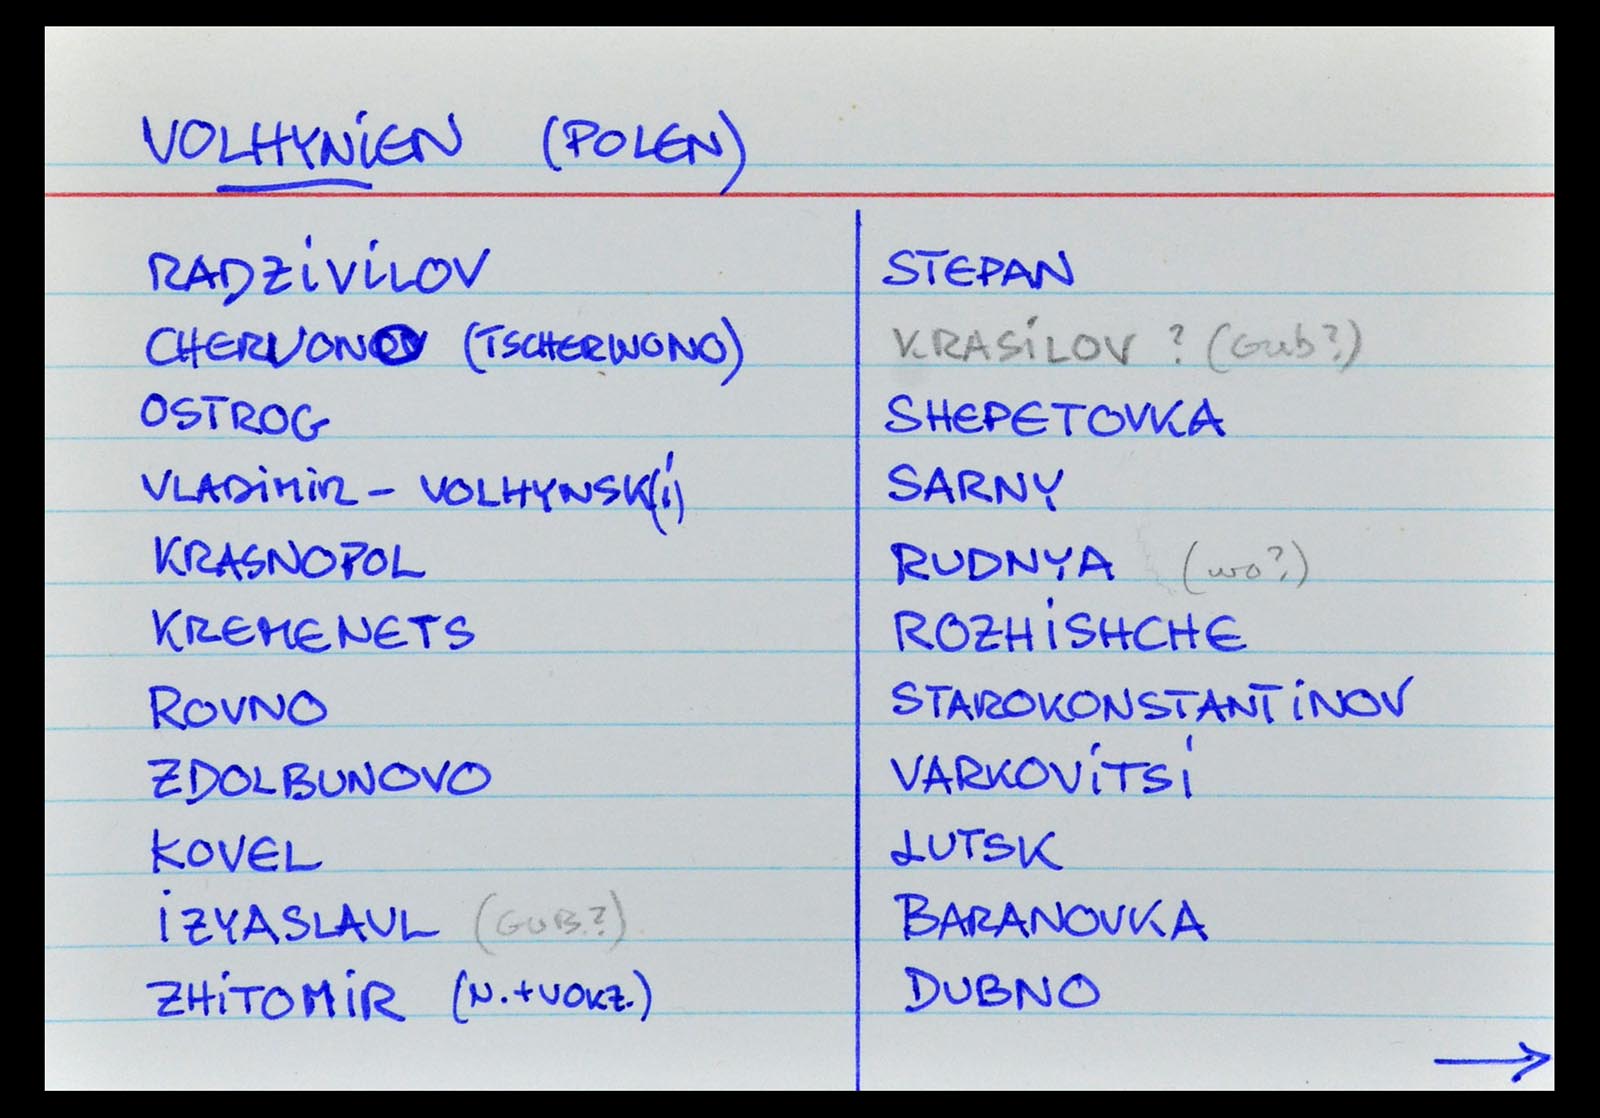 VOLHYNIEN (POLEN)
RADZIVILOV
CHERVONO (TSCHERWONO)
OSTROG
VLADIMIR - VOLHYNSK(I)
KRASNOPOL
KREMENETS
ROVNO
ZDOLBUNOVO
KOVEL
IZYASLAVL (GUB.?)
ZHITOMIR (N.+VOKZ.)
STEPAN
KRASILOV ? (Gub?)
SHEPETOVKA
SARNY
RUDNYA (wo?)
ROZHISHCHE
STAROKONSTANTINOV
VARKOVITSI
LUTSK
BARANOVKA
DUBNO
→